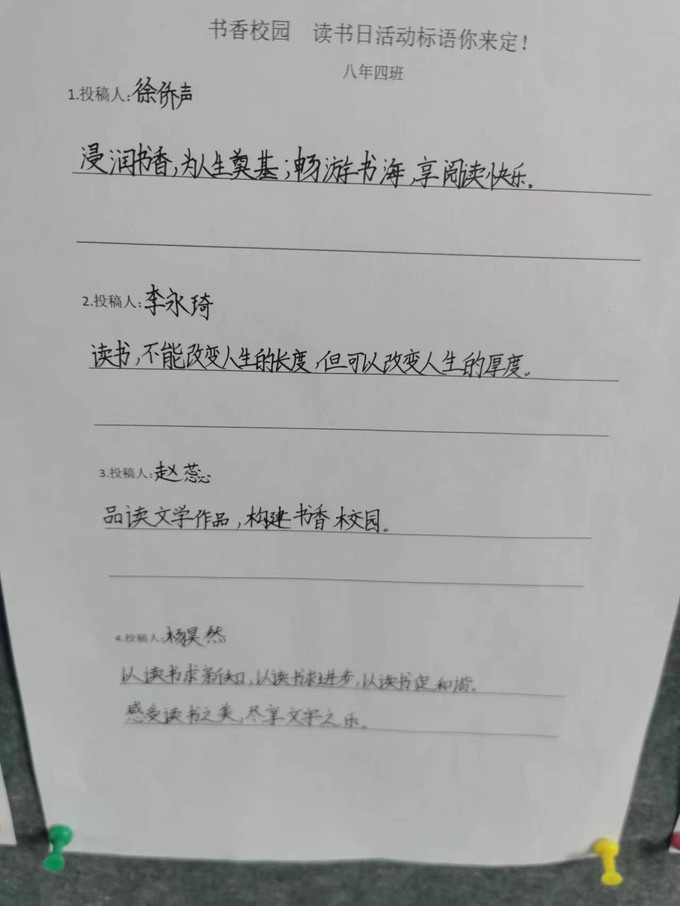 书香校园 读书日活动标语你来定！
八年四班
1.投稿人：徐侨声
浸润书香，为人生奠基；畅游书海，享阅读快乐。
2.投稿人：李永琦
读书，不能改变人生的长度，但可以改变人生的厚度。
3.投稿人：赵蕊
品读文学作品，构建书香校园。
4.投稿人：杨昊然
以读书求新知，以读书求进步，以读书促和谐。
感受读书之美，尽享文学之乐。